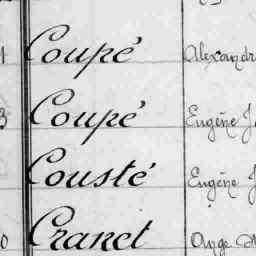 Coupé Alexandr
3 Coupé Eugène J
Cousté Eugène J
0 Cranet Ange